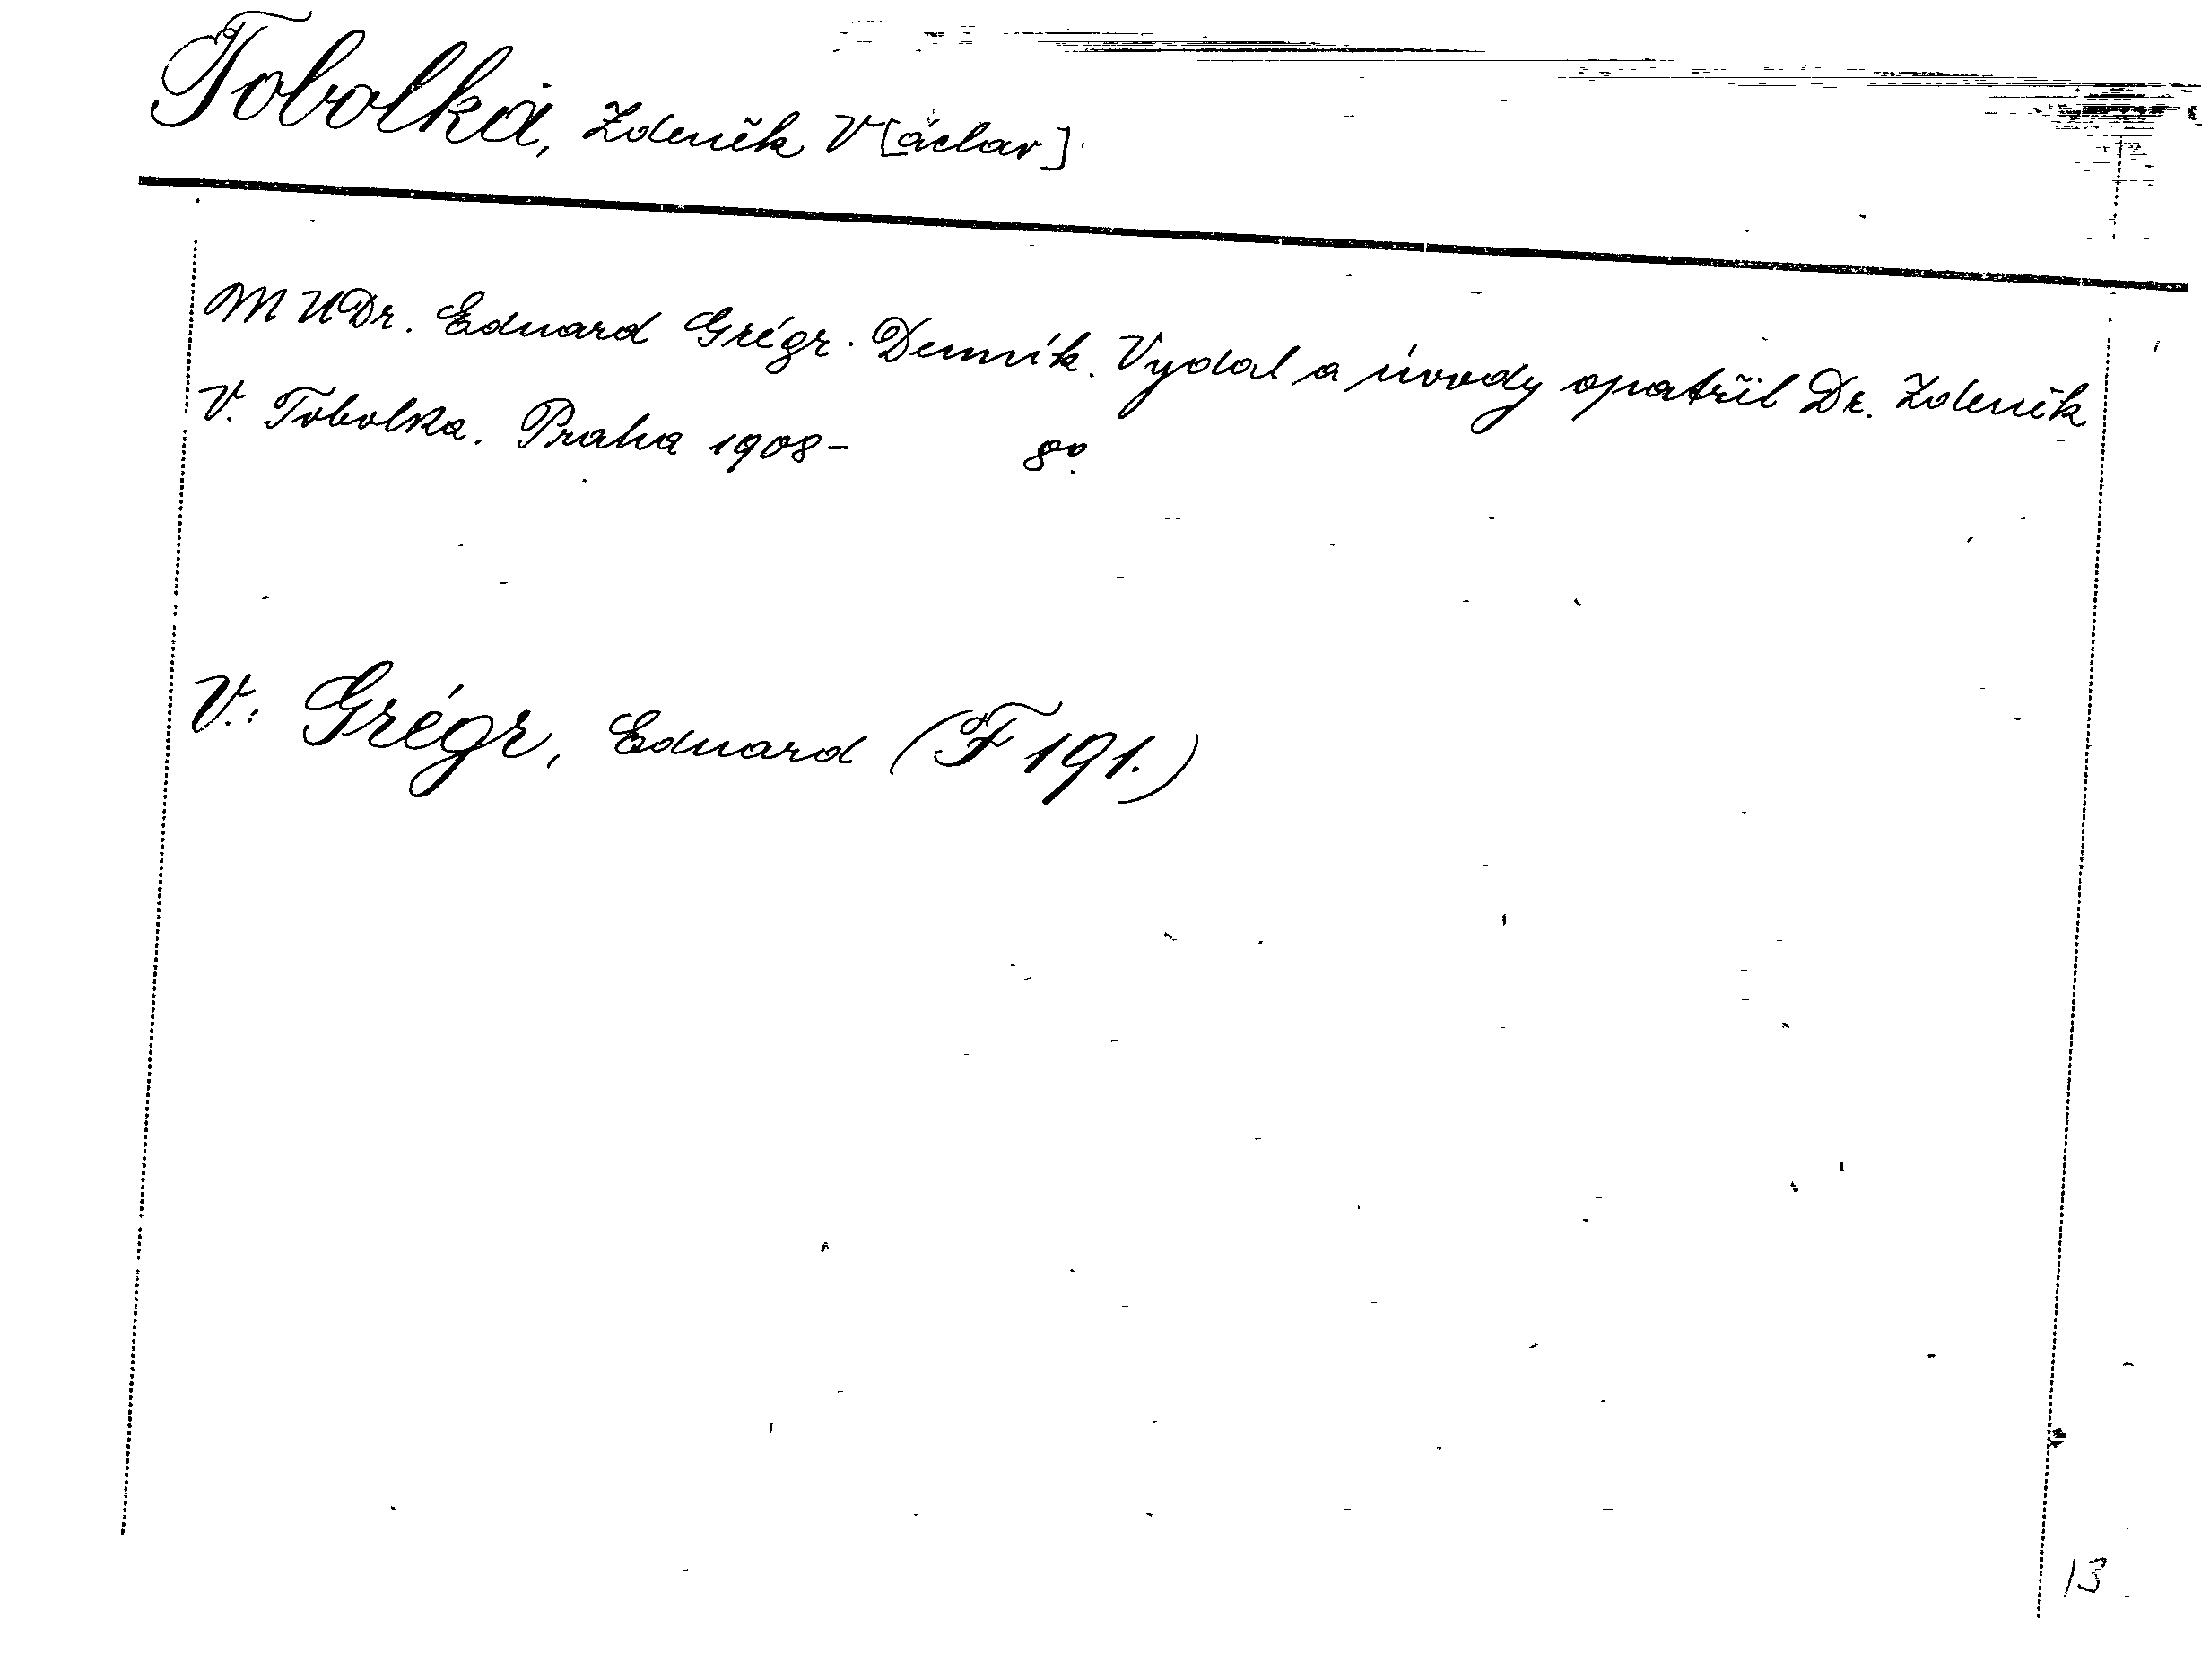 Tobolka, Zdeněk V[áclav]
MUDr. Eduard Grégr. Denník. Vydal a úvody opatřil Dr. Zdeněk
V. Tobolka. Praha 1908- 8º.
V.: Grégr, Eduard (F 191.)
13